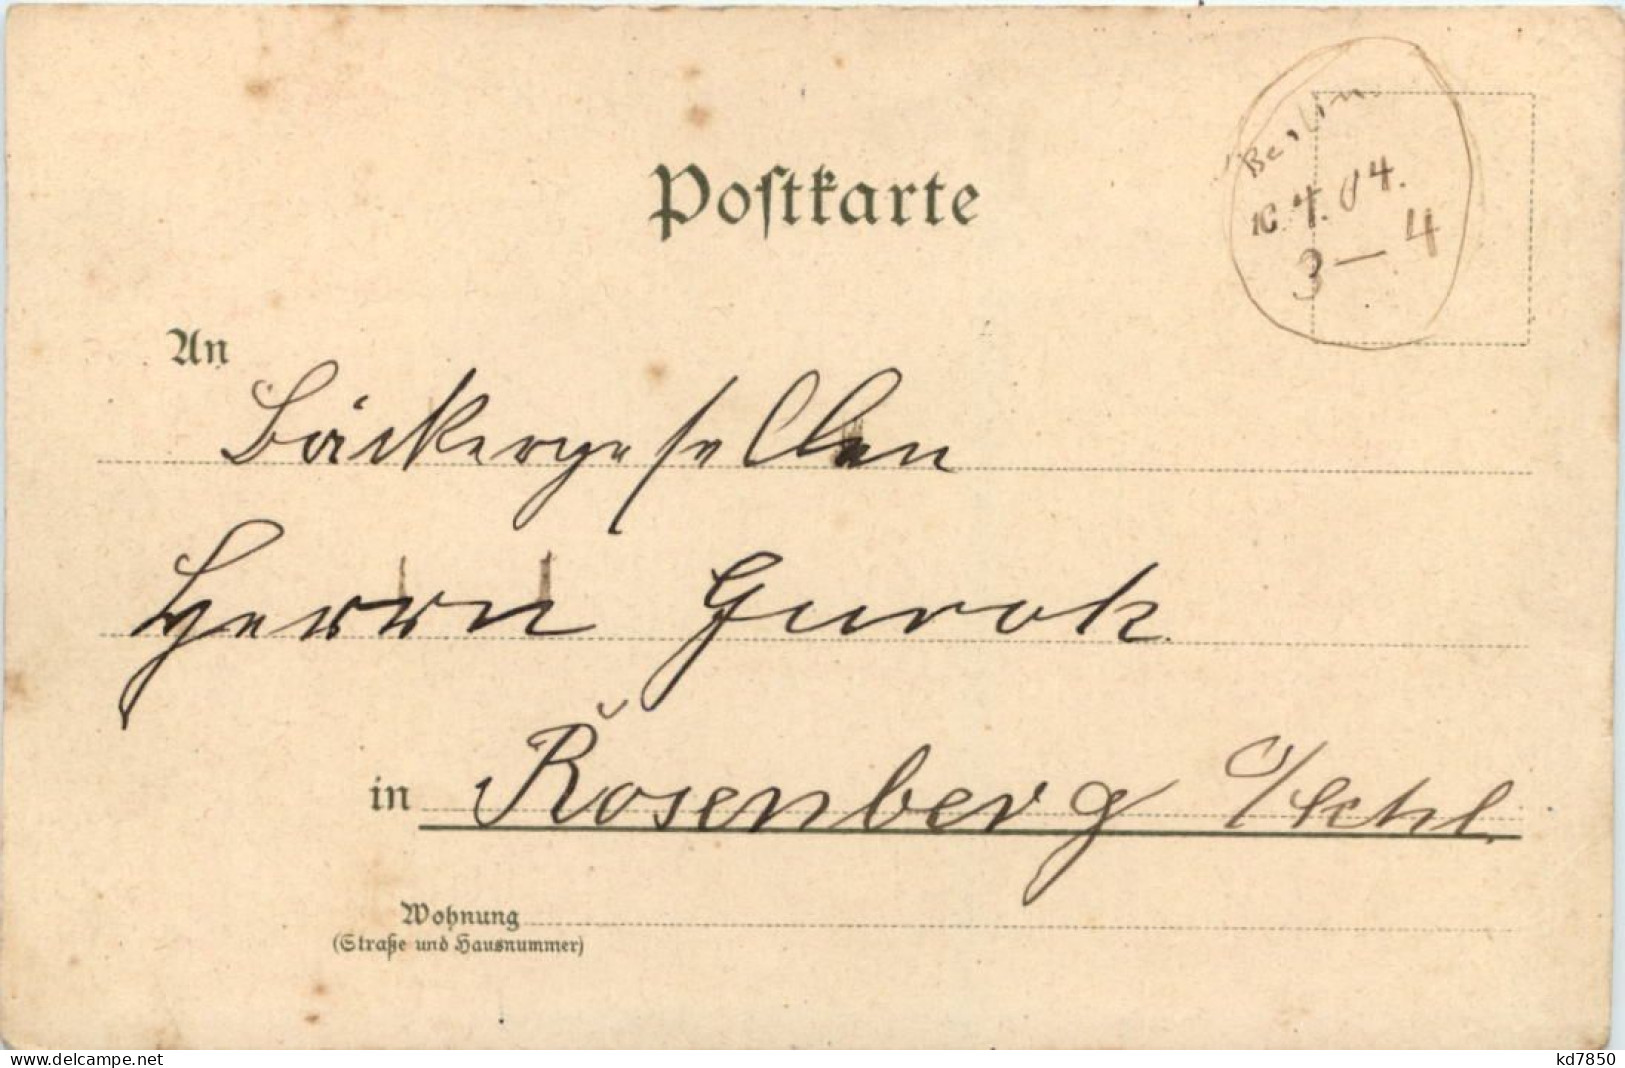 Postkarte
Berlin.
10.4.04.
3–4
An
Bäckergesellen
Herrn Gurok
in Rosenberg O/Schl.
Wohnung
(Straße und Hausnummer)
www.delcampe.net
kd7850